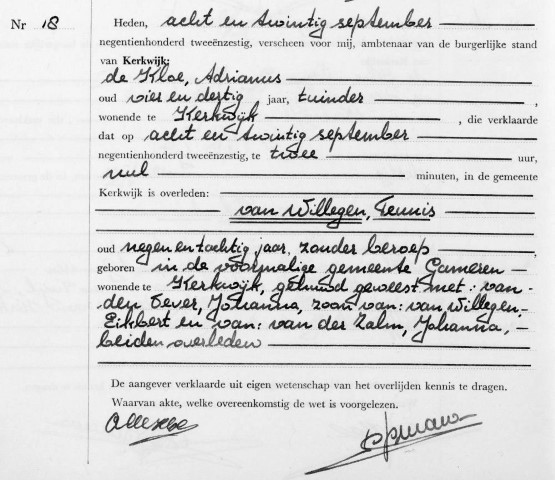 Nr 18
Heden, acht en twintig september
negentienhonderd tweeënzestig, verscheen voor mij, ambtenaar van de burgerlijke stand
van Kerkwijk:
de Kloe, Adrianus
oud vier en dertig jaar, tuinder ,
wonende te Kerkwijk , die verklaarde
dat op acht en twintig september
negentienhonderd tweeënzestig, te twee uur,
nul minuten, in de gemeente
Kerkwijk is overleden:
van Willegen, Teunis
oud negen en tachtig jaar, zonder beroep ,
geboren in de voormalige gemeente Gameren
wonende te Kerkwijk, gehuwd geweest met: van
den Oever, Johanna, zoon van: van Willegen,
Eikbert en van: van der Zalm, Johanna,
beiden overleden
De aangever verklaarde uit eigen wetenschap van het overlijden kennis te dragen.
Waarvan akte, welke overeenkomstig de wet is voorgelezen.